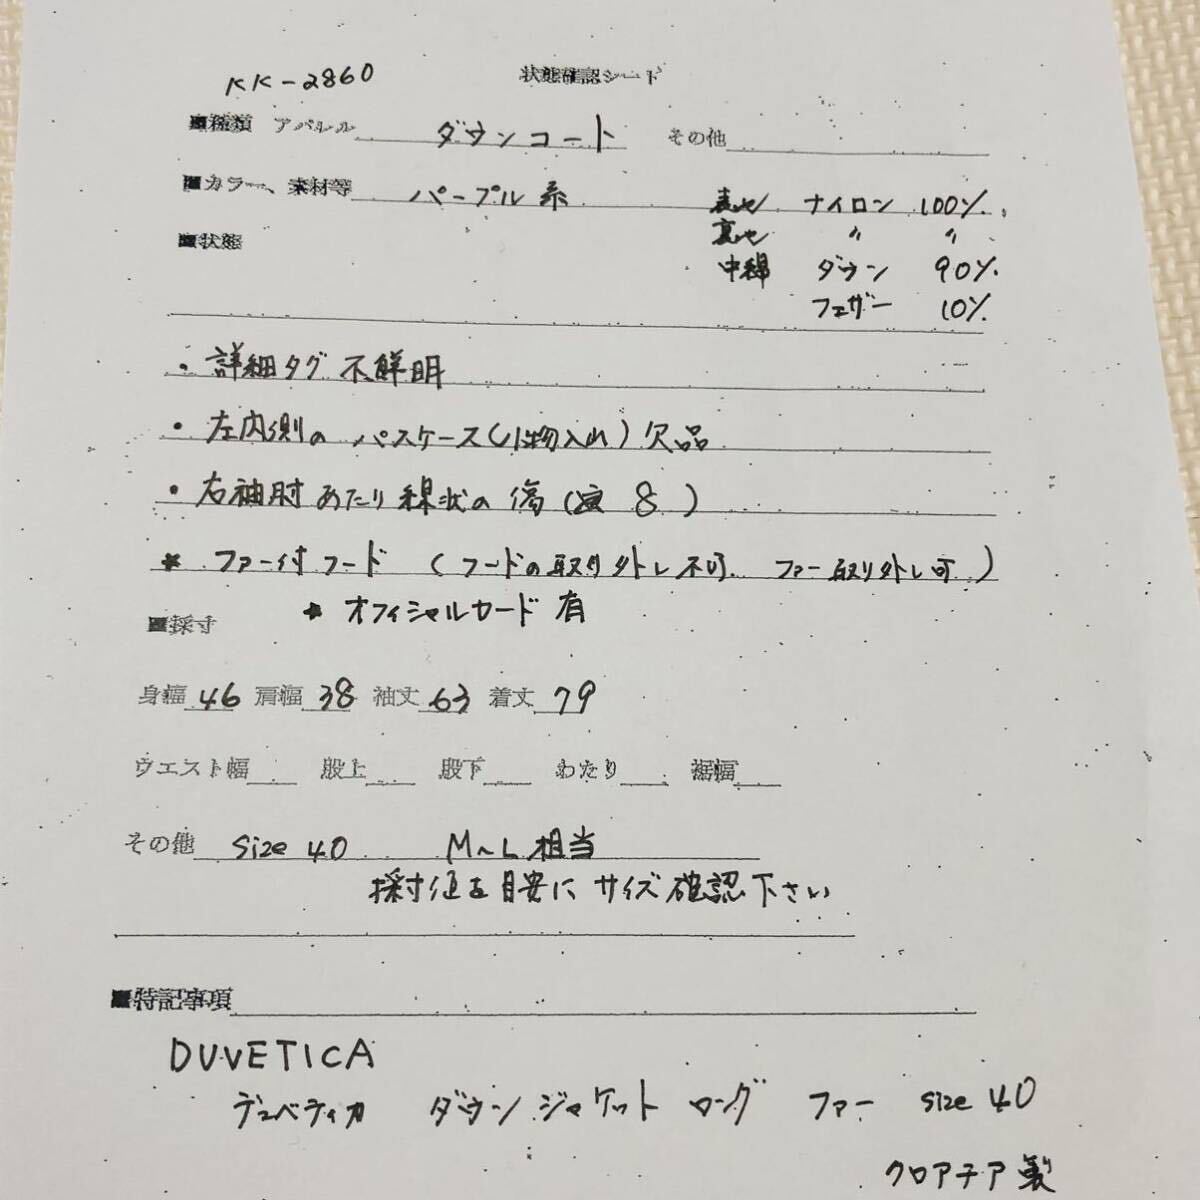 KK-2860 状態確認シート
■種類 アパレル ダウンコート その他
■カラー、素材等 パープル系 表地 ナイロン 100%.
■状態 裏地 〃 〃
中綿 ダウン 90%.
フェザー 10%.
・詳細タグ不鮮明
・左内側のパスケース(小物入れ)欠品
・右袖肘あたり線状の傷( 8 )
* ファー付フード (フードの取り外し不可. ファー取り外し可)
* オフィシャルカード有
■採寸
身幅 46 肩幅 38 袖丈 63 着丈 79
ウエスト幅 股上 股下 わたり 裾幅
その他 size 40 M~L相当
採寸値を目安にサイズ確認下さい
■特記事項
DUVETICA
デュベティカ ダウンジャケット ロング ファー size 40
クロアチア製